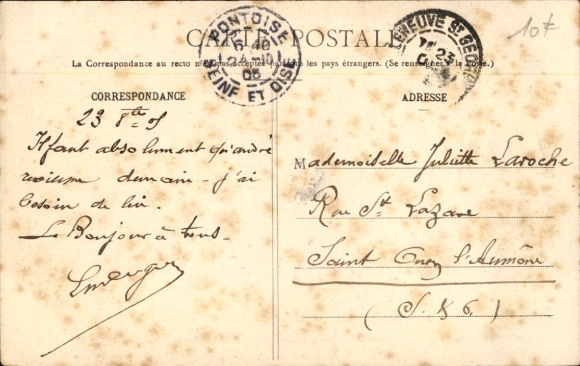 10f
CARTE POSTALE
La Correspondance au recto n'est pas acceptée par tous les pays étrangers. (Se renseigner à la Poste.)
PONTOISE
6 40
05
SEINE ET OISE
CORRESPONDANCE
ADRESSE
23 8bre 05
Il faut absolument qu'andré
revienne demain - j'ai
besoin de lui.
Le Bonjour à tous -
Mademoiselle Juliette Laroche
Rue St Lazare
Saint Ouen l'Aumône
(S. & O.)